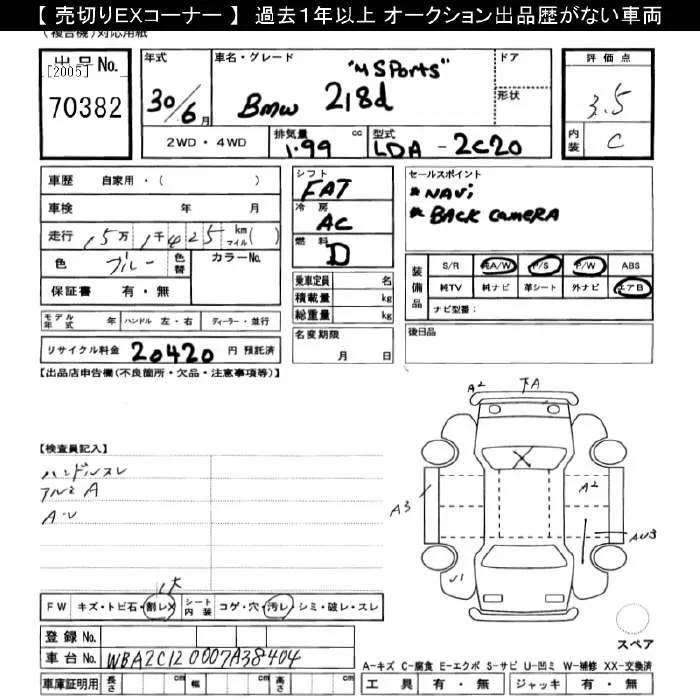 【 売切りEXコーナー 】 過去1年以上 オークション出品歴がない車両
(複合機)対応用紙
出品No.
[2005]
70382
年式
30/6月
車名・グレード
"M Sports"
BMW 218d
ドア
形状
評価点
3.5
内装
C
2WD・4WD
排気量 cc
1.99
型式
LDA - 2C20
車歴 自家用・( )
車検 年 月
走行 15万 1千 425 km マイル( )
色 ブルー 色替 カラーNo.
保証書 有・無
モデル年式 年 ハンドル 左・右 ディーラー・並行
リサイクル料金 20420 円 預託済
シフト
FAT
冷房
AC
燃料
D
乗車定員 名
積載量 kg
総重量 kg
名変期限
月 日
セールスポイント
* NAVi
* BACK CAMERA
装備品
S/R 純A/W P/S P/W ABS
純TV 純ナビ 革シート 外ナビ エアB
ナビ型番:
後日品
【出品店申告欄(不良箇所・欠品・注意事項等)】
【検査員記入】
ハンドルスレ
アルミ A
A・U
A2 下A
X
A3
A2
AU3
U1
スペア
大
FW キズ・トビ石・割レX シート内装 コゲ・穴・汚レ・シミ・破レ・スレ
登録 No.
車台 No. WBA2C120007A38404
車庫証明用 長さ cm 幅 cm 高さ cm
A-キズ C-腐食 E-エクボ S-サビ U-凹ミ W-補修 XX-交換済
工具 有・無 ジャッキ 有・無